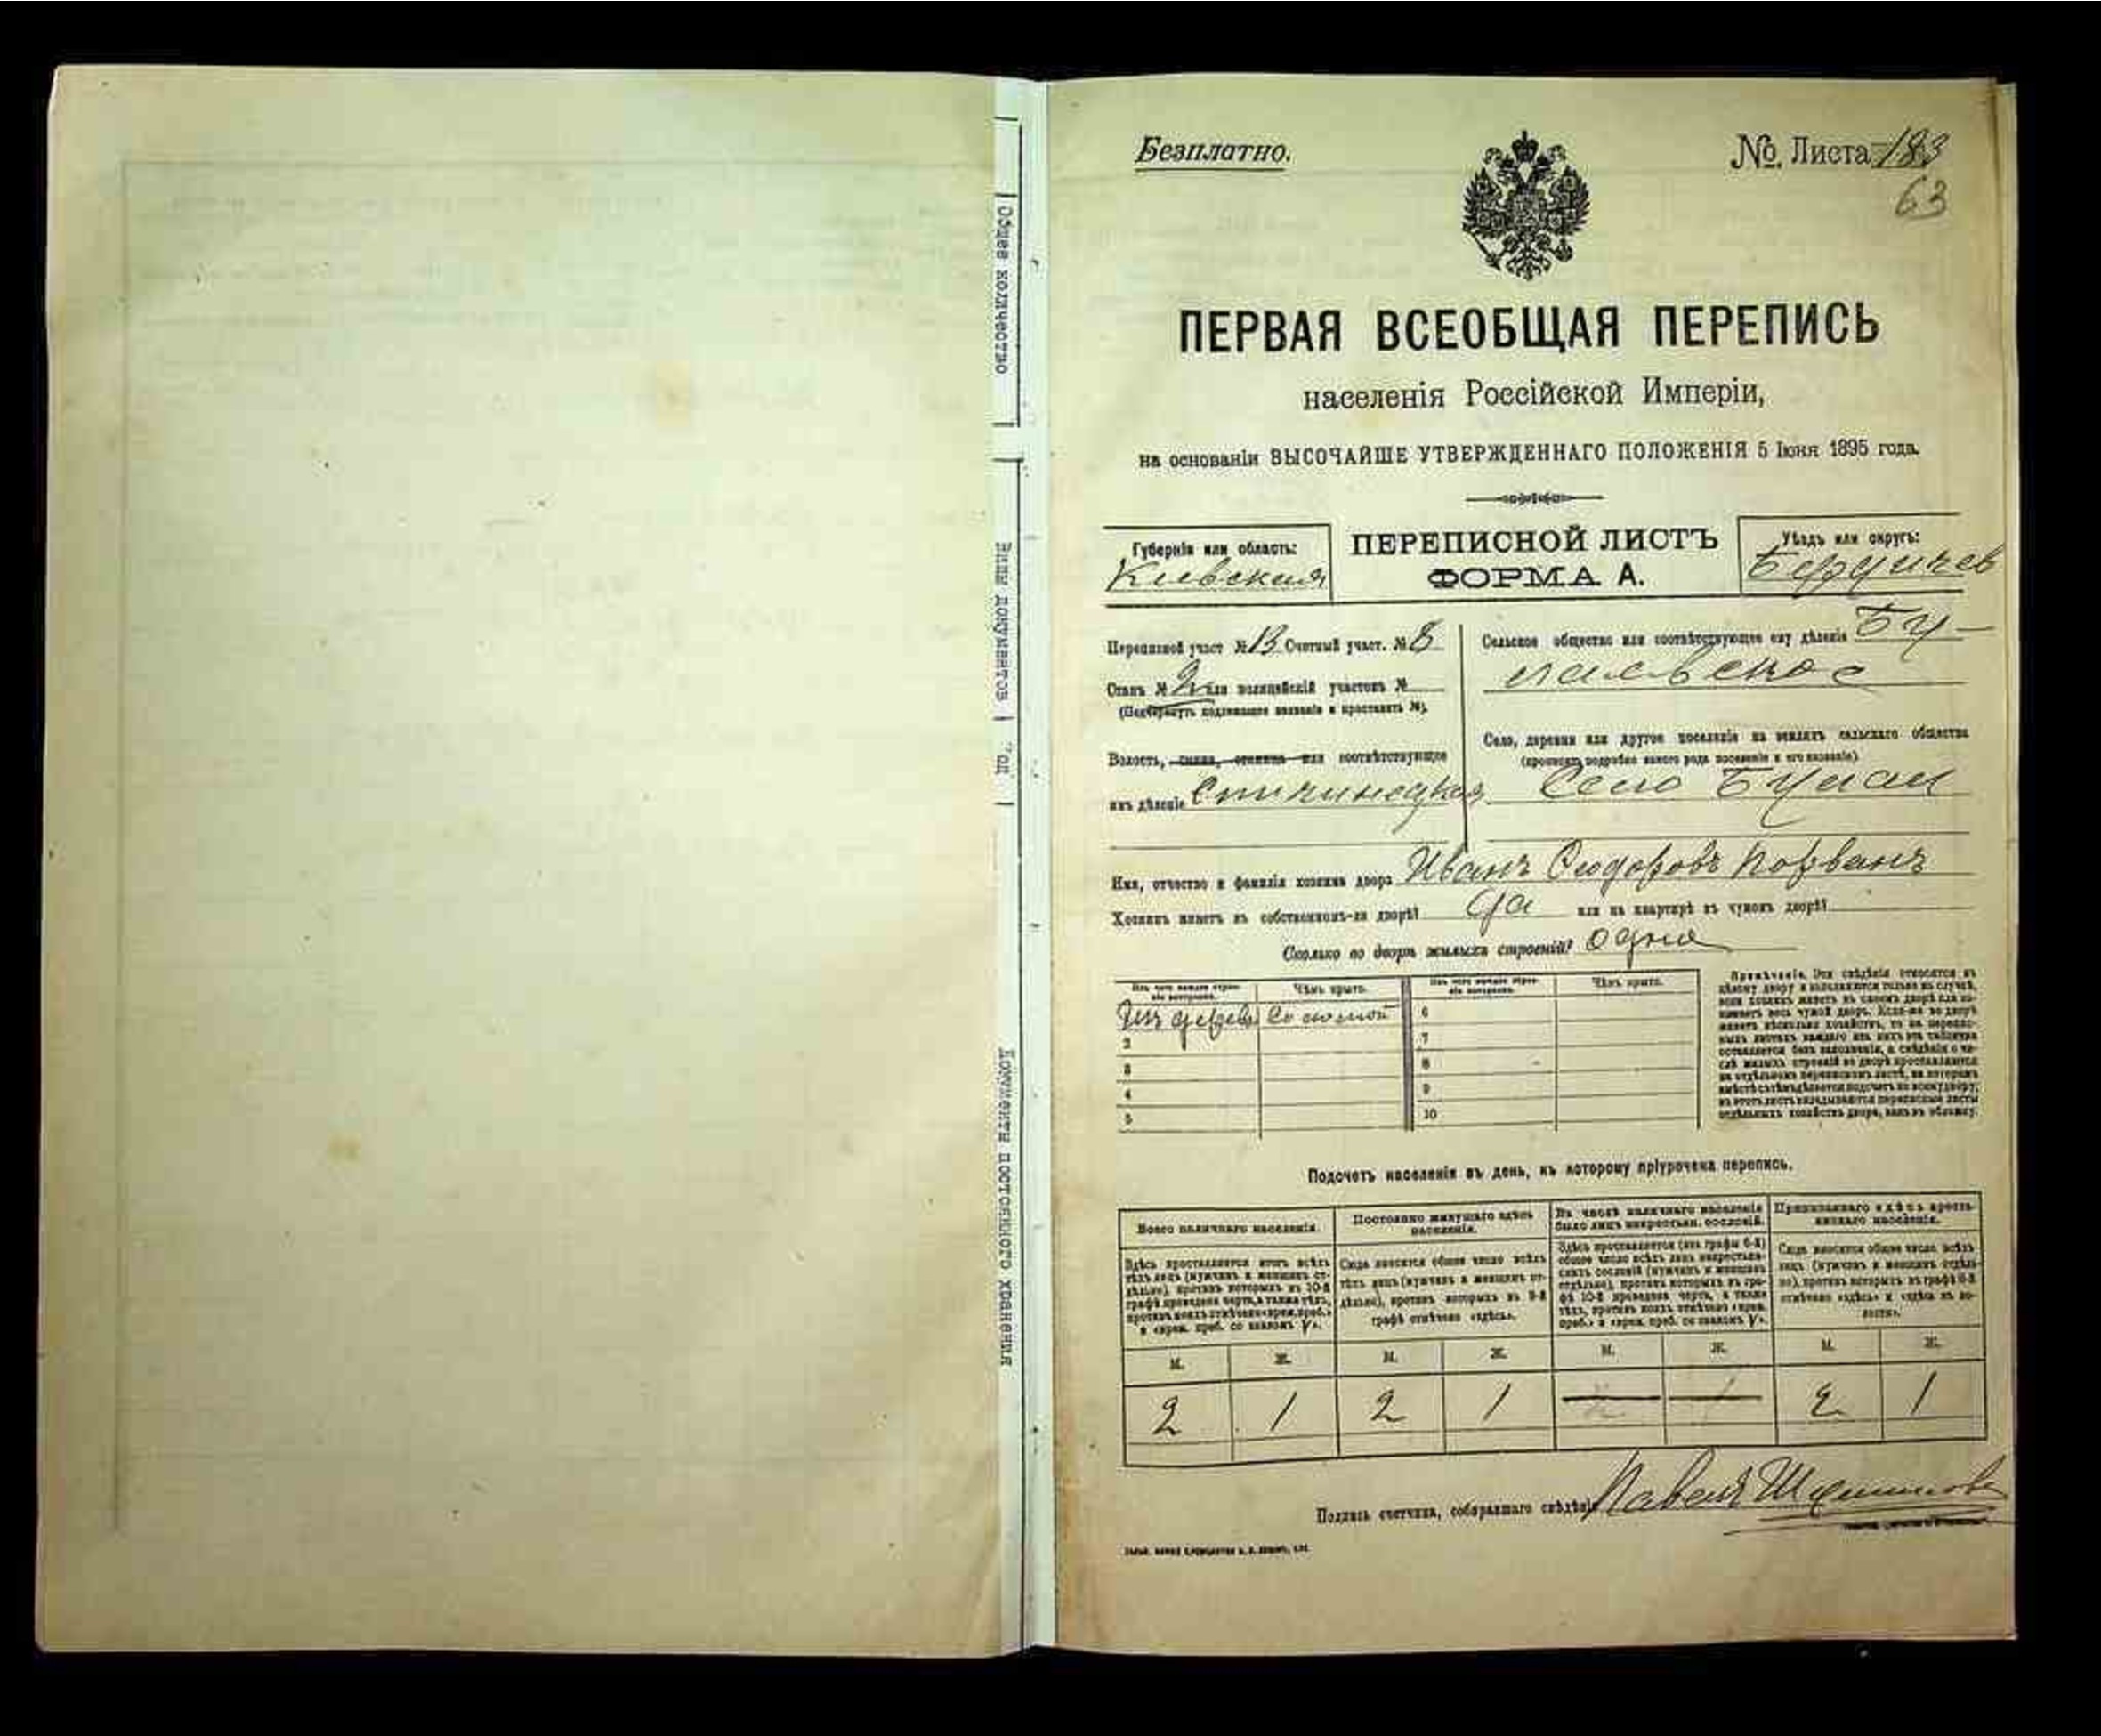 Безплатно.
№. Листа 183
63
ПЕРВАЯ ВСЕОБЩАЯ ПЕРЕПИСЬ
населенія Россійской Имперіи,
на основаніи ВЫСОЧАЙШЕ УТВЕРЖДЕННАГО ПОЛОЖЕНІЯ 5 Іюня 1895 года.
Губернія или область:
Киевская
ПЕРЕПИСНОЙ ЛИСТЪ
ФОРМА А.
Уѣздъ или округъ:
Бердичев
Переписной участ № 13 Счетный участ. № 8
Станъ № 2 или полицейскій участокъ №
(Подчеркнуть подлежащее названіе и проставить №).
Волость, гмина, станица или соотвѣтствующее
имъ дѣленіе
Сельское общество или соотвѣтствующее ему дѣленіе
Село, деревня или другое поселеніе на земляхъ сельскаго общества
(прописать подробно какого рода поселеніе и его названіе)
Село
Имя, отчество и фамилія хозяина двора Иванъ Сидоровъ
Хозяинъ живетъ въ собственномъ-ли дворѣ? да или на квартирѣ въ чужомъ дворѣ?
Сколько во дворѣ жилыхъ строеній? одна
Изъ чего каждое строеніе построено.
Чѣмъ крыто.
Изъ чего каждое строеніе построено.
Чѣмъ крыто.
Изъ дерева Соломой
6
2
7
3
8
4
9
5
10
Примѣчаніе. Эти свѣдѣнія относятся къ
цѣлому двору и заполняются только въ случаѣ,
если хозяинъ живетъ въ своемъ дворѣ или за-
нимаетъ весь чужой дворъ. Если-же во дворѣ
живетъ нѣсколько хозяйствъ, то на перепис-
ныхъ листахъ каждаго изъ нихъ эта табличка
оставляется безъ заполненія, а свѣдѣнія о чи-
слѣ жилыхъ строеній во дворѣ проставляются
на отдѣльномъ переписномъ листѣ, на которомъ
вмѣстѣ съ тѣмъ дѣлается подсчетъ по всему двору;
въ этотъ листъ вкладываются переписные листы
отдѣльныхъ хозяйствъ двора, какъ въ обложку.
Подсчетъ населенія въ день, къ которому пріурочена перепись.
Всего наличнаго населенія.
Постоянно живущаго здѣсь
населенія.
Въ числѣ наличнаго населенія
было лицъ некрестьян. сословій.
Приписаннаго здѣсь кресть-
янскаго населенія.
Здѣсь проставляется итогъ всѣхъ
тѣхъ лицъ (мужчинъ и женщинъ от-
дѣльно), противъ которыхъ въ 10-й
графѣ проведена черта, а также тѣхъ,
противъ коихъ отмѣчено «врем. преб.»
и «врем. преб. со знакомъ V».
Сюда вносится общее число всѣхъ
тѣхъ лицъ (мужчинъ и женщинъ от-
дѣльно), противъ которыхъ въ 9-й
графѣ отмѣчено «здѣсь».
Здѣсь проставляется (изъ графы 6-й)
общее число всѣхъ лицъ некрестьян-
скихъ сословій (мужчинъ и женщинъ
отдѣльно), противъ которыхъ въ гра-
фѣ 10-й проведена черта, а также
тѣхъ, противъ коихъ отмѣчено «врем.
преб.» и «врем. преб. со знакомъ V».
Сюда вносится общее число всѣхъ
лицъ (мужчинъ и женщинъ отдѣль-
но), противъ которыхъ въ графѣ 8-й
отмѣчено «здѣсь» и «здѣсь въ во-
лости».
М. Ж. М. Ж. М. Ж. М. Ж.
2 1 2 1 2 1
Подпись счетчика, собиравшаго свѣдѣнія Павелъ
Общее количество
Виды документов
Документы постоянного хранения